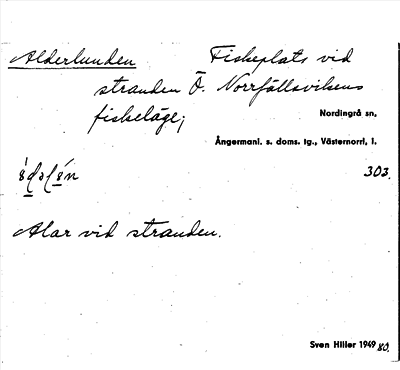 Alderlunden Fiskeplats vid
stranden Ö. Norrfällsvikens
fiskeläge;
Nordingrå sn,
Ångermanl. s. doms. tg., Västernorrl, l.
303.
Alar vid stranden.
Sven Hiller 1949 80.